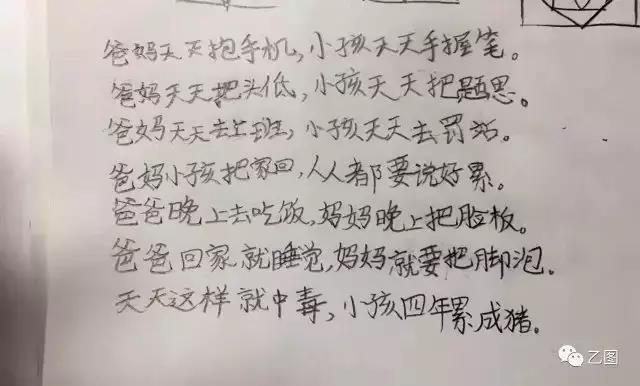 爸妈天天抱手机，小孩天天手握笔。
爸妈天天把头低，小孩天天把题思。
爸妈天天去上班，小孩天天去罚站。
爸妈小孩把家回，人人都要说好累。
爸爸晚上去吃饭，妈妈晚上把脸板。
爸爸回家就睡觉，妈妈就要把脚泡。
天天这样就中毒，小孩四年累成猪。
乙图